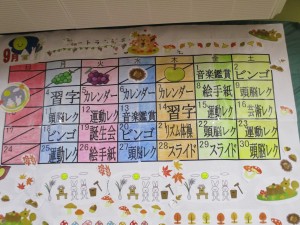 9月
月 火 水 木 金 土
1 音楽鑑賞 2 ビンゴ
4 習字 5 カレンダー 6 カレンダー 7 カレンダー 8 絵手紙 9 頭脳レク
11 頭脳レク 12 運動レク 13 音楽鑑賞 14 習字 15 運動レク 16 芸術レク
17 18 ビンゴ 19 誕生会 20 ビンゴ 21 リズム体操 22 スライド 23 運動レク
24 25 運動レク 26 絵手紙 27 頭脳レク 28 スライド 29 スライド 30 頭脳レク